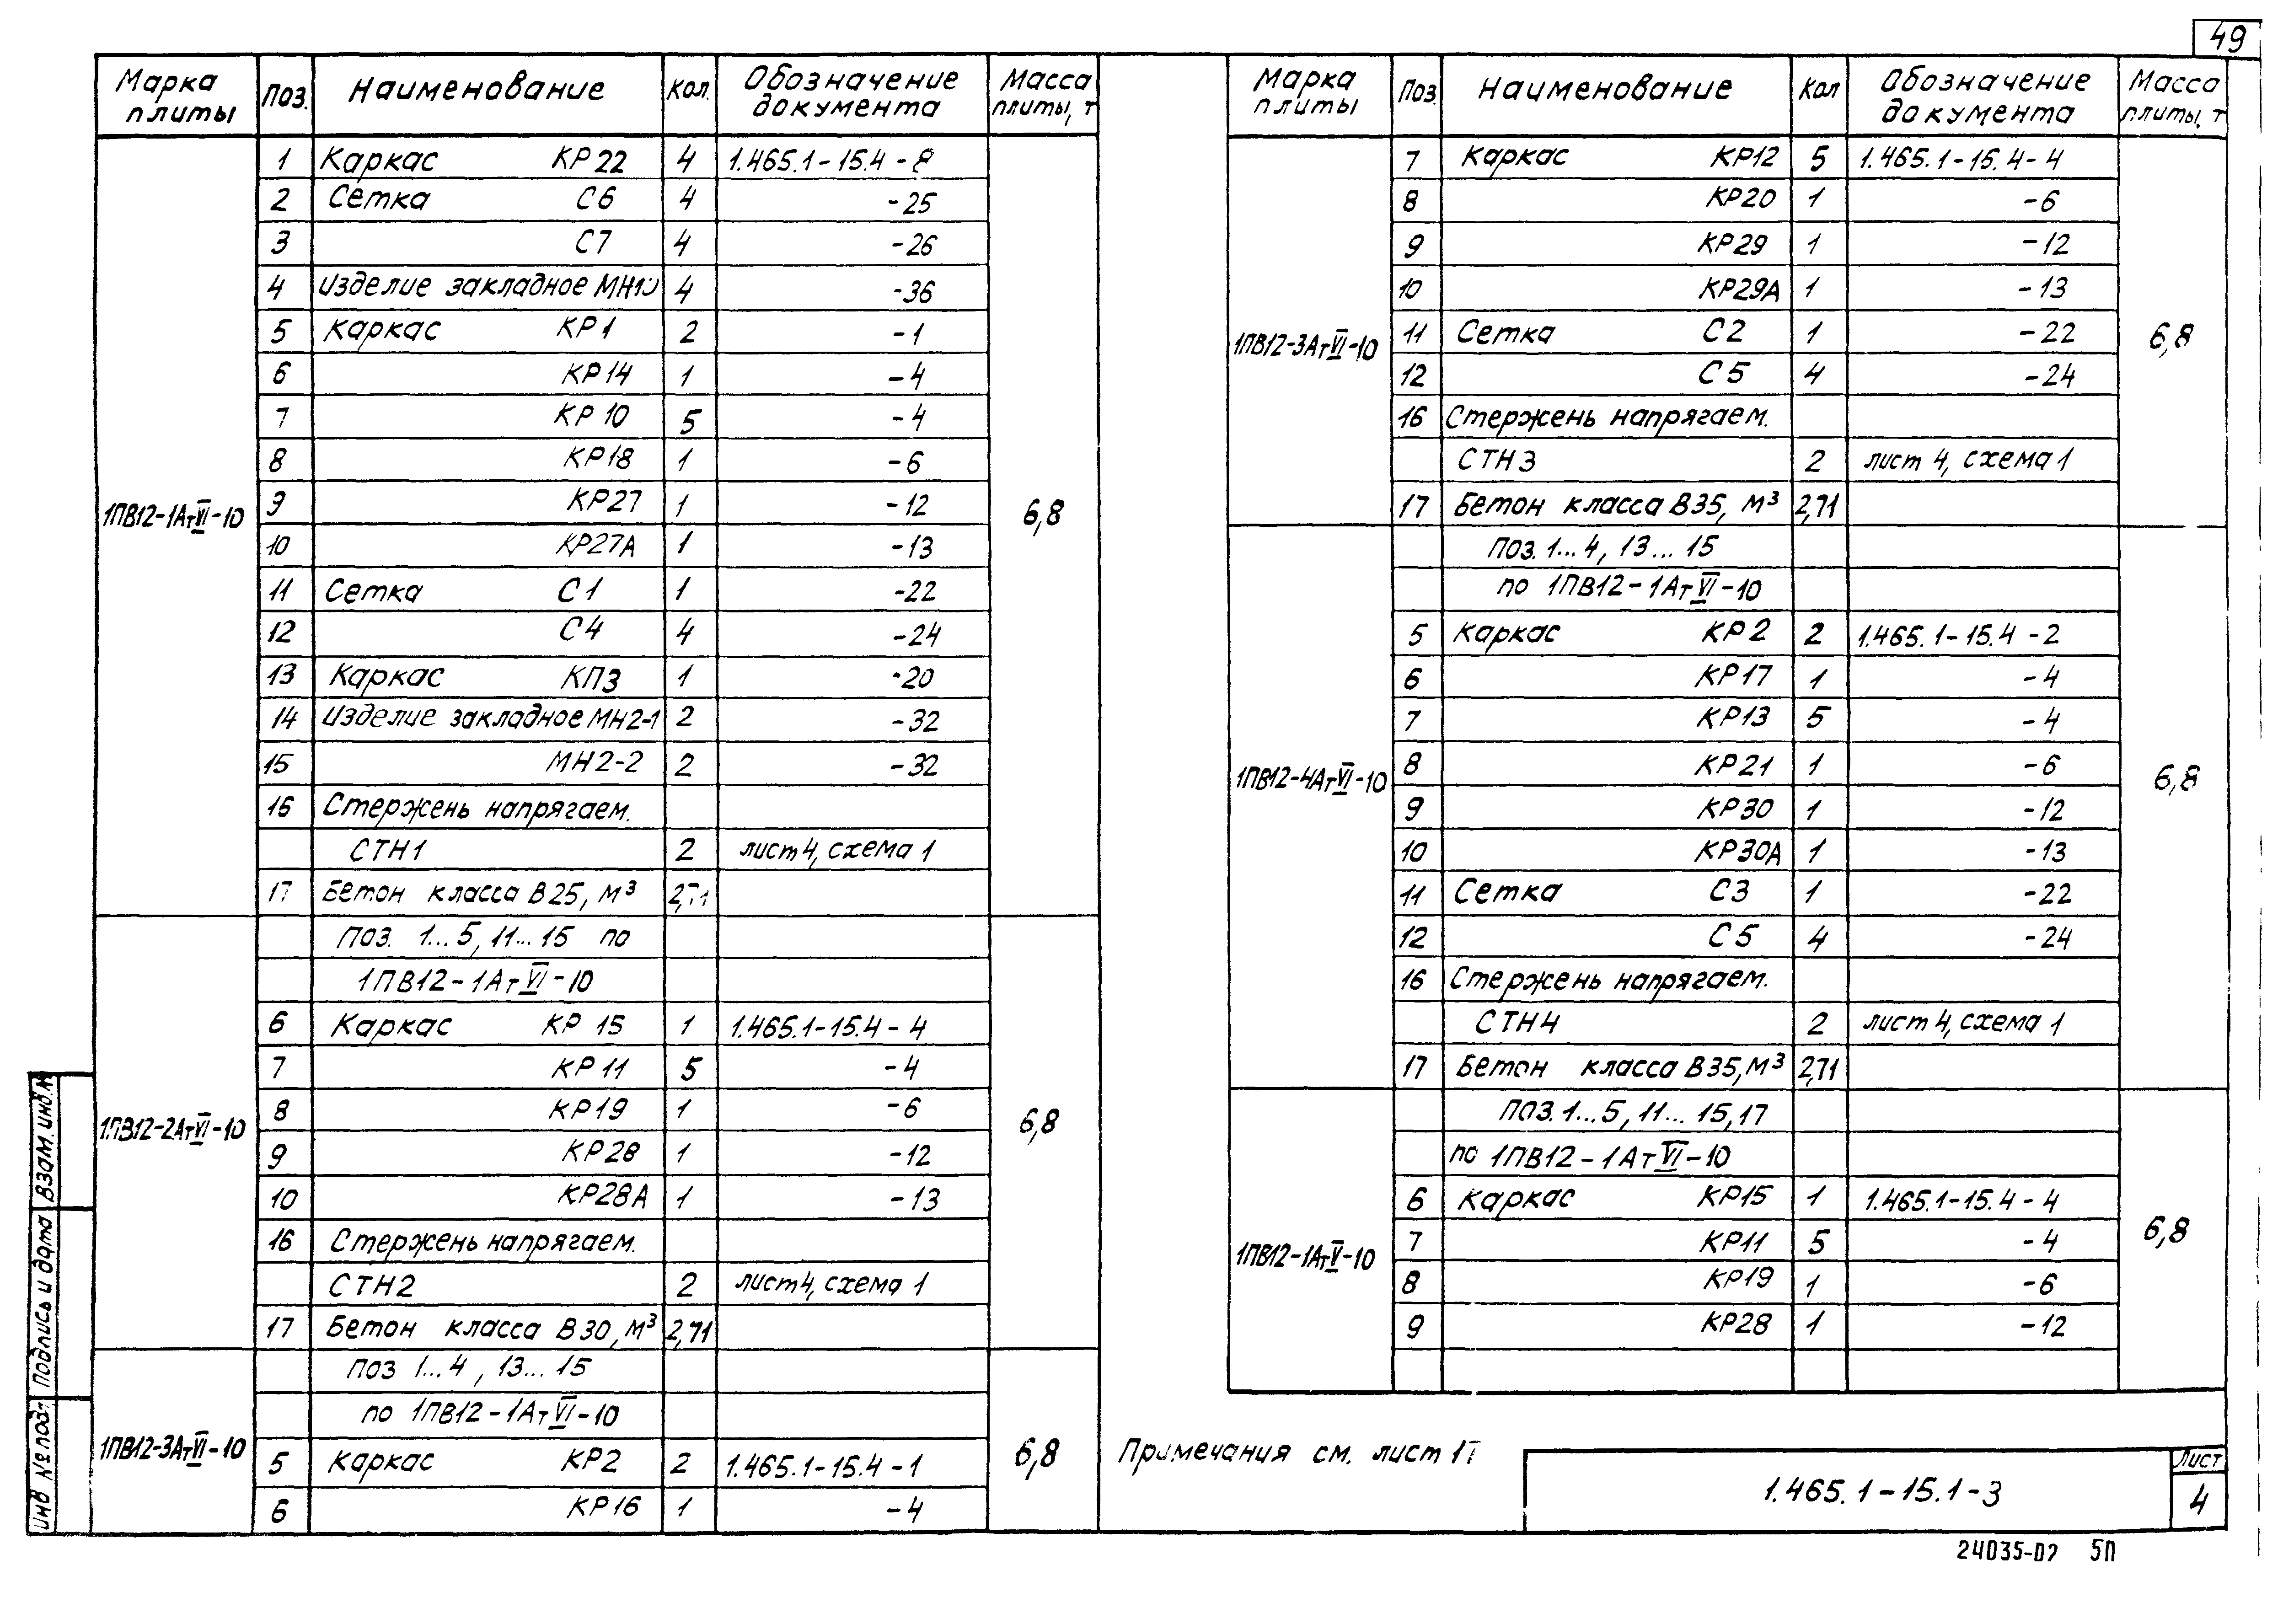 49
Марка плиты | Поз. | Наименование | Кол. | Обозначение документа | Масса плиты, т
1ПВ12-1АтVI-10 | 6,8
1 | Каркас КР22 | 4 | 1.465.1-15.4-8
2 | Сетка С6 | 4 | -25
3 | С7 | 4 | -26
4 | Изделие закладное МН10 | 4 | -36
5 | Каркас КР1 | 2 | -1
6 | КР14 | 1 | -4
7 | КР10 | 5 | -4
8 | КР18 | 1 | -6
9 | КР27 | 1 | -12
10 | КР27А | 1 | -13
11 | Сетка С1 | 1 | -22
12 | С4 | 4 | -24
13 | Каркас КП3 | 1 | -20
14 | Изделие закладное МН2-1 | 2 | -32
15 | МН2-2 | 2 | -32
16 | Стержень напрягаем.
СТН1 | 2 | лист 4, схема 1
17 | Бетон класса В25, м³ | 2,71
1ПВ12-2АтVI-10 | 6,8
Поз. 1...5, 11...15 по
1ПВ12-1АтVI-10
6 | Каркас КР15 | 1 | 1.465.1-15.4-4
7 | КР11 | 5 | -4
8 | КР19 | 1 | -6
9 | КР28 | 1 | -12
10 | КР28А | 1 | -13
16 | Стержень напрягаем.
СТН2 | 2 | лист 4, схема 1
17 | Бетон класса В30, м³ | 2,71
1ПВ12-3АтVI-10 | 6,8
Поз 1...4, 13...15
по 1ПВ12-1АтVI-10
5 | Каркас КР2 | 2 | 1.465.1-15.4-1
6 | КР16 | 1 | -4
Марка плиты | Поз. | Наименование | Кол | Обозначение документа | Масса плиты, т
1ПВ12-3АтVI-10 | 6,8
7 | Каркас КР12 | 5 | 1.465.1-15.4-4
8 | КР20 | 1 | -6
9 | КР29 | 1 | -12
10 | КР29А | 1 | -13
11 | Сетка С2 | 1 | -22
12 | С5 | 4 | -24
16 | Стержень напрягаем.
СТН3 | 2 | лист 4, схема 1
17 | Бетон класса В35, м³ | 2,71
1ПВ12-4АтVI-10 | 6,8
Поз. 1...4, 13...15
по 1ПВ12-1АтVI-10
5 | Каркас КР2 | 2 | 1.465.1-15.4-2
6 | КР17 | 1 | -4
7 | КР13 | 5 | -4
8 | КР21 | 1 | -6
9 | КР30 | 1 | -12
10 | КР30А | 1 | -13
11 | Сетка С3 | 1 | -22
12 | С5 | 4 | -24
16 | Стержень напрягаем.
СТН4 | 2 | лист 4, схема 1
17 | Бетон класса В35, м³ | 2,71
1ПВ12-1АтV-10 | 6,8
Поз. 1...5, 11...15, 17
по 1ПВ12-1АтVI-10
6 | Каркас КР15 | 1 | 1.465.1-15.4-4
7 | КР11 | 5 | -4
8 | КР19 | 1 | -6
9 | КР28 | 1 | -12
Примечания см. лист
1.465.1-15.1-3
Лист
4
24035-02 50
Инв № подл
Подпись и дата
Взам. инв. №